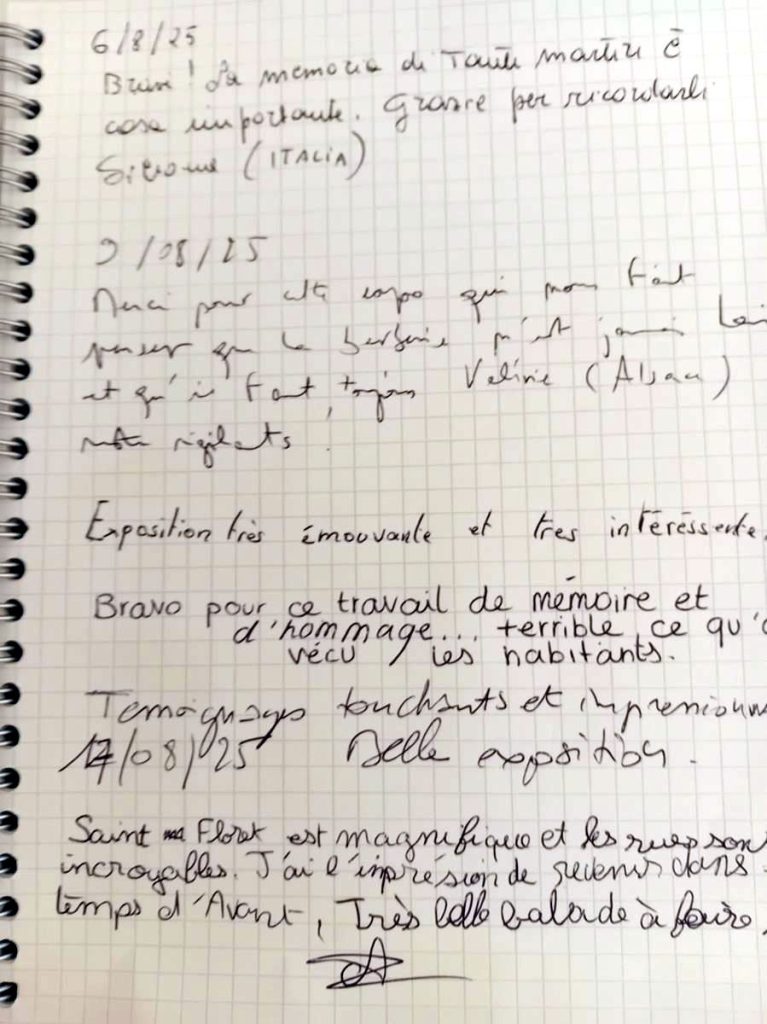 6/8/25
Bravi! La memoria di Tanti martiri è
cosa importante. Grazie per ricordarli
(ITALIA)
9/08/25
Merci pour cette expo qui nous fait
penser que la barbarie n'est jamais loin
et qu'il faut, toujours Valérie (Alsace)
rester vigilants.
Exposition très émouvante et tres intéréssente.
Bravo pour ce travail de mémoire et
d'hommage... terrible ce qu'
vécu les habitants.
Temoignages touchants et impressionn
17/08/25 Belle exposition.
Saint Floret est magnifique et les rues son
incroyables. J'ai l'imprésion de revenir dans
temps d'Avant, Très belle balade à faire.